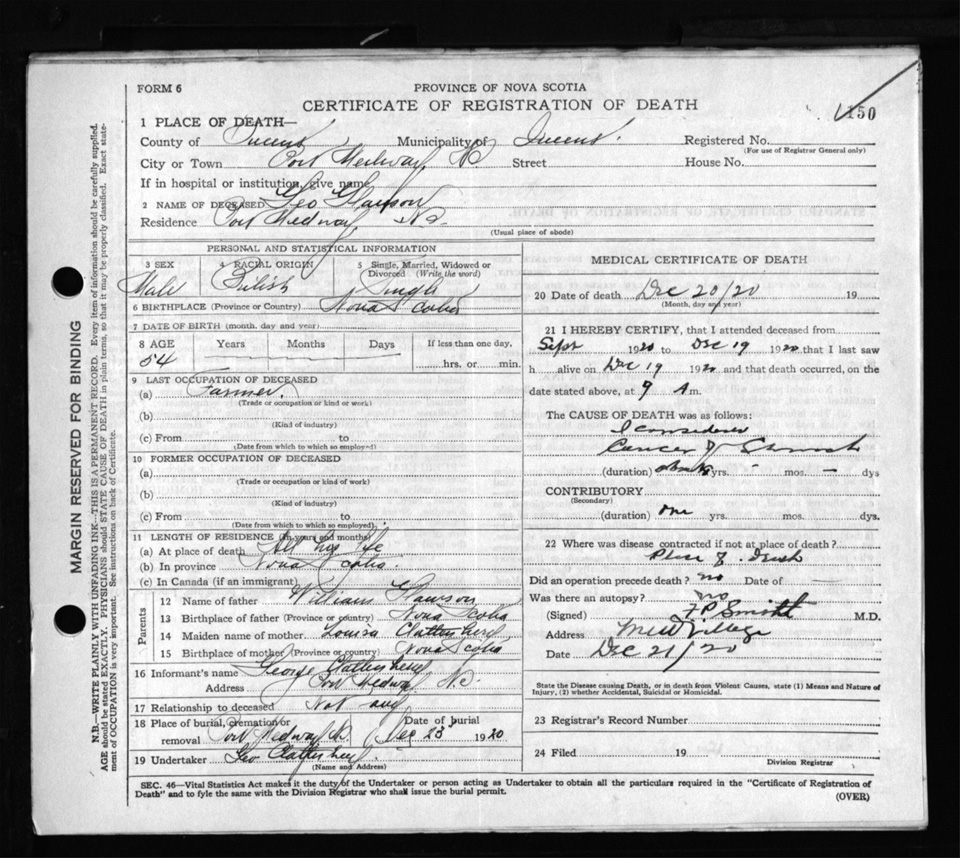 FORM 6
PROVINCE OF NOVA SCOTIA
CERTIFICATE OF REGISTRATION OF DEATH
150
1 PLACE OF DEATH—
County of Queens Municipality of Queens Registered No.
(For use of Registrar General only)
City or Town Port Medway N.S. Street House No.
If in hospital or institution, give name
2 NAME OF DECEASED Geo
Residence Port Medway N.S.
(Usual place of abode)
PERSONAL AND STATISTICAL INFORMATION
3 SEX 4 RACIAL ORIGIN 5 Single, Married, Widowed or Divorced (Write the word)
Male British Single
6 BIRTHPLACE (Province or Country) Nova Scotia
7 DATE OF BIRTH (month, day and year)
8 AGE Years Months Days If less than one day,
54 hrs. or min.
9 LAST OCCUPATION OF DECEASED
(a) Farmer
(Trade or occupation or kind of work)
(b)
(Kind of industry)
(c) From to
(Date from which to which so employed)
10 FORMER OCCUPATION OF DECEASED
(a)
(Trade or occupation or kind of work)
(b)
(Kind of industry)
(c) From to
(Date from which to which so employed)
11 LENGTH OF RESIDENCE (In years and months)
(a) At place of death All his life
(b) In province Nova Scotia
(c) In Canada (if an immigrant)
Parents
12 Name of father William
13 Birthplace of father (Province or country) Nova Scotia
14 Maiden name of mother Louisa
15 Birthplace of mother (Province or country) Nova Scotia
16 Informant's name George
Address Port Medway N.S.
17 Relationship to deceased Not any
18 Place of burial, cremation or removal Port Medway Date of burial Dec 23 1920
19 Undertaker Geo
(Name and Address)
MEDICAL CERTIFICATE OF DEATH
20 Date of death Dec 20/20 19
(Month, day and year)
21 I HEREBY CERTIFY, that I attended deceased from
Sept 1920 to Dec 19 1920 that I last saw
h alive on Dec 19 1920 and that death occurred, on the
date stated above, at 9 A m.
The CAUSE OF DEATH was as follows:
I considered
Cancer of Stomach
(duration) yrs. - mos. - dys
CONTRIBUTORY
(Secondary)
(duration) one yrs. mos. dys.
22 Where was disease contracted if not at place of death?
Place of Death
Did an operation precede death? no Date of
Was there an autopsy? no
(Signed) F.P. Smith M.D.
Address Mill Village
Date Dec 21/20
State the Disease causing Death, or in death from Violent Causes, state (1) Means and Nature of
Injury, (2) whether Accidental, Suicidal or Homicidal.
23 Registrar's Record Number
24 Filed 19
Division Registrar
SEC. 46—Vital Statistics Act makes it the duty of the Undertaker or person acting as Undertaker to obtain all the particulars required in the "Certificate of Registration of
Death" and to fyle the same with the Division Registrar who shall issue the burial permit.
(OVER)
MARGIN RESERVED FOR BINDING
N.B.—WRITE PLAINLY WITH UNFADING INK—THIS IS A PERMANENT RECORD. Every item of information should be carefully supplied.
AGE should be stated EXACTLY. PHYSICIANS should STATE CAUSE OF DEATH in plain terms, so that it may be properly classified. Exact statement of OCCUPATION is very important. See instructions on back of Certificate.